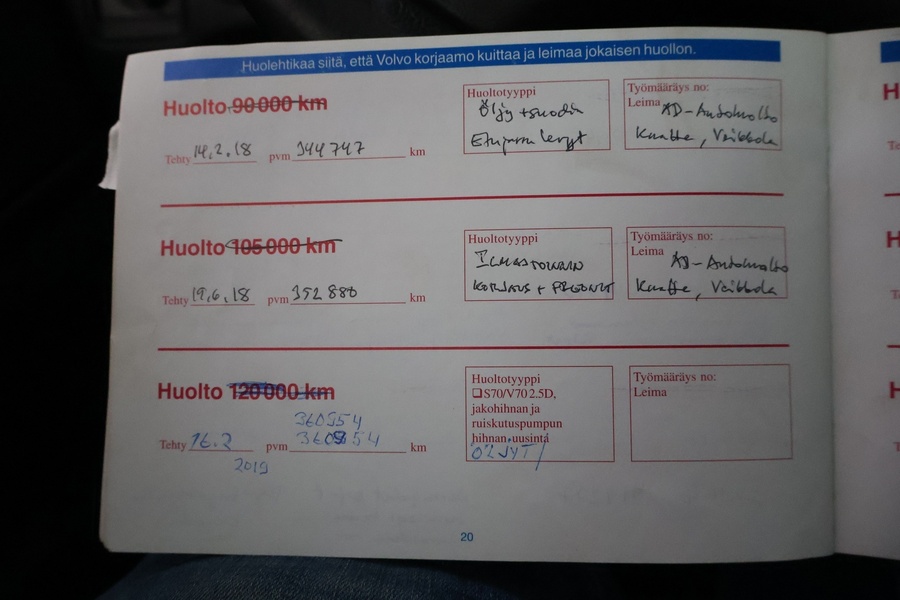 Huolehtikaa siitä, että Volvo korjaamo kuittaa ja leimaa jokaisen huollon.
Huolto 90 000 km
Tehty 14.2.18 pvm 344 747 km
Huoltotyyppi
Öljy + suodin
Työmääräys no:
Leima AD-Autohuolto
Veikkola
Huolto 105 000 km
Tehty 19.6.18 pvm 352 880 km
Huoltotyyppi
ILMASTOINNIN
KORJAUS +
Työmääräys no:
Leima AD-Autohuolto
Veikkola
Huolto 120 000 km
360954
Tehty 16.2 pvm 360954 km
2019
Huoltotyyppi
❏ S70/V70 2.5D,
jakohihnan ja
ruiskutuspumpun
hihnan uusinta
ÖLJYT
Työmääräys no:
Leima
20